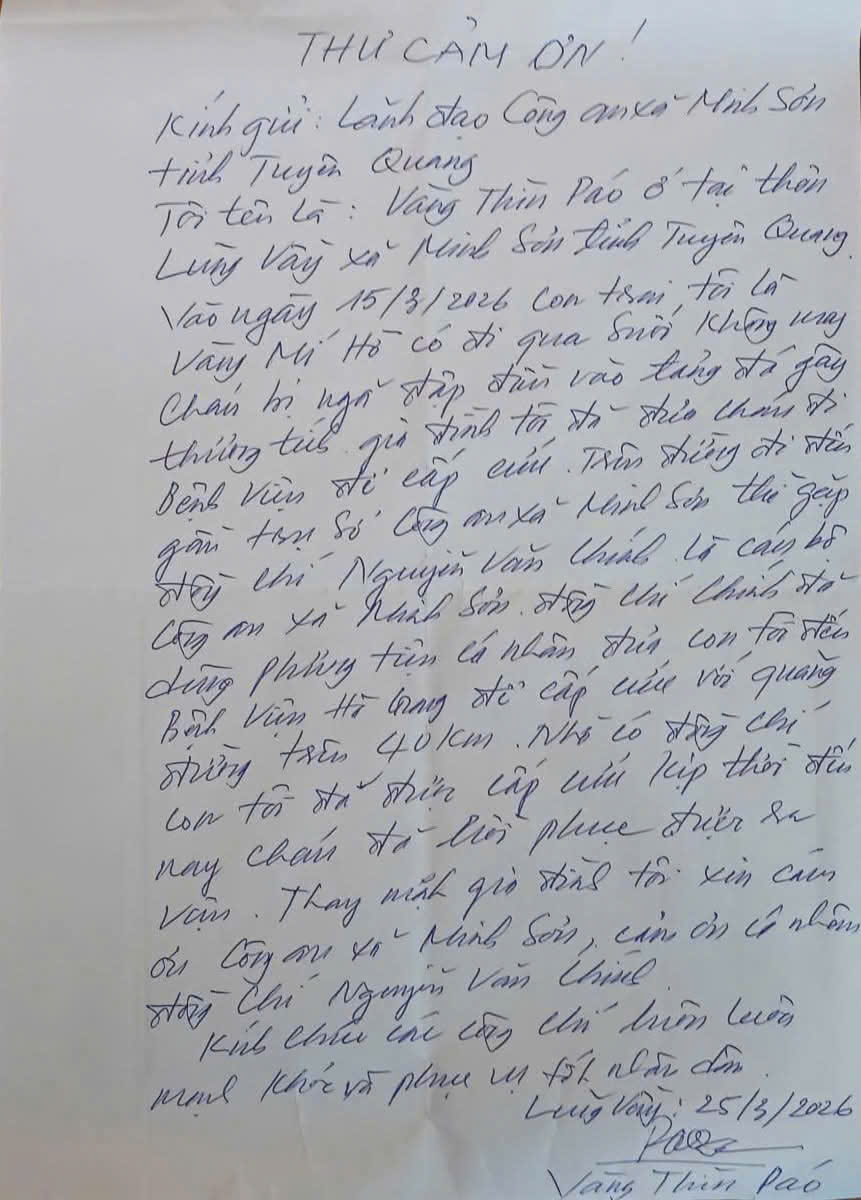 THƯ CẢM ƠN!
Kính gửi: Lãnh đạo Công an xã Minh Sơn
tỉnh Tuyên Quang
Tôi tên là: Vàng Thìn Páo ở tại thôn
Lùng Vầy xã Minh Sơn tỉnh Tuyên Quang.
Vào ngày 15/3/2026 con trai tôi là
Vàng Mí Hồ có đi qua suối không may
cháu bị ngã đập đầu vào tảng đá gây
thương tích. gia đình tôi đã đưa cháu đi
Bệnh viện để cấp cứu. Trên đường đi đến
gần trụ sở Công an xã Minh Sơn thì gặp
đồng chí Nguyễn Văn Chính là cán bộ
Công an xã Minh Sơn. đồng chí Chính đã
dùng phương tiện cá nhân đưa con tôi đến
Bệnh viện Hà Giang để cấp cứu với quãng
đường trên 40km. Nhờ có đồng chí
con tôi đã được cấp cứu kịp thời đến
nay cháu đã hồi phục được ra
viện. Thay mặt gia đình tôi xin cảm
ơn Công an xã Minh Sơn, cảm ơn cá nhân
đồng chí Nguyễn Văn Chính.
Kính chúc các đồng chí luôn luôn
mạnh khỏe và phục vụ tốt nhân dân.
Lùng Vầy: 25/3/2026
Vàng Thìn Páo